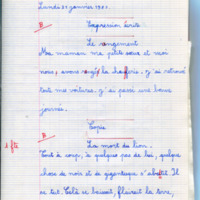 Lundi 22 janvier 1901.
B
Expression écrite
Le rangement
Ma maman ma petite sœur et moi
nous avons rangé la chaufferie. J'ai retrouvé
toute mes voitures. J'ai passé une bonne
journée.
B
Copie
1 fte
La mort du lion.
Tout à coup, à quelques pas de lui, quelque
chose de noir et de gigantesque s'abattit. Il
se tut. Cela se baissait, flairait la terre,